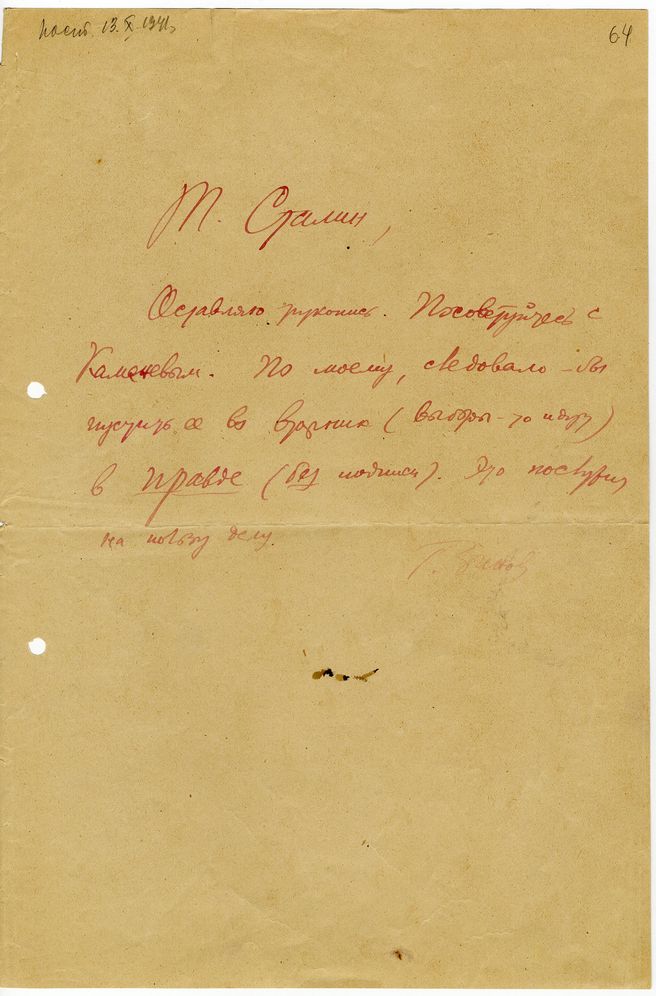 пост. 13.X.1941
64
Т. Сталин,
Оставляю рукопись. Посоветуйтесь с
Каменевым. По моему, следовало-бы
пустить ее во вторник (выборы-то идут)
в Правде (без подписи). Это послужит
на пользу делу.
Г. Зинов